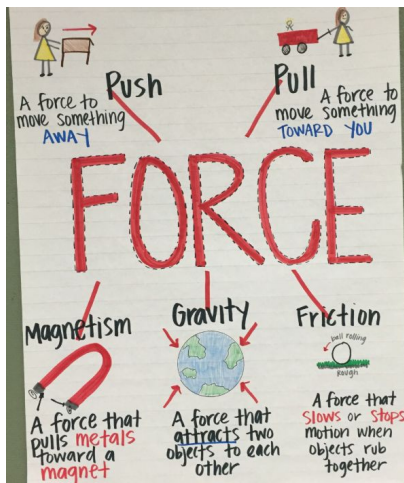 Push
A force to
move something
AWAY
Pull
A force to
move something
TOWARD YOU
FORCE
Magnetism
A force that
pulls metals
toward a
magnet
Gravity
A force that
attracts two
objects to each
other
Friction
ball rolling
rough
A force that
slows or stops
motion when
objects rub
together